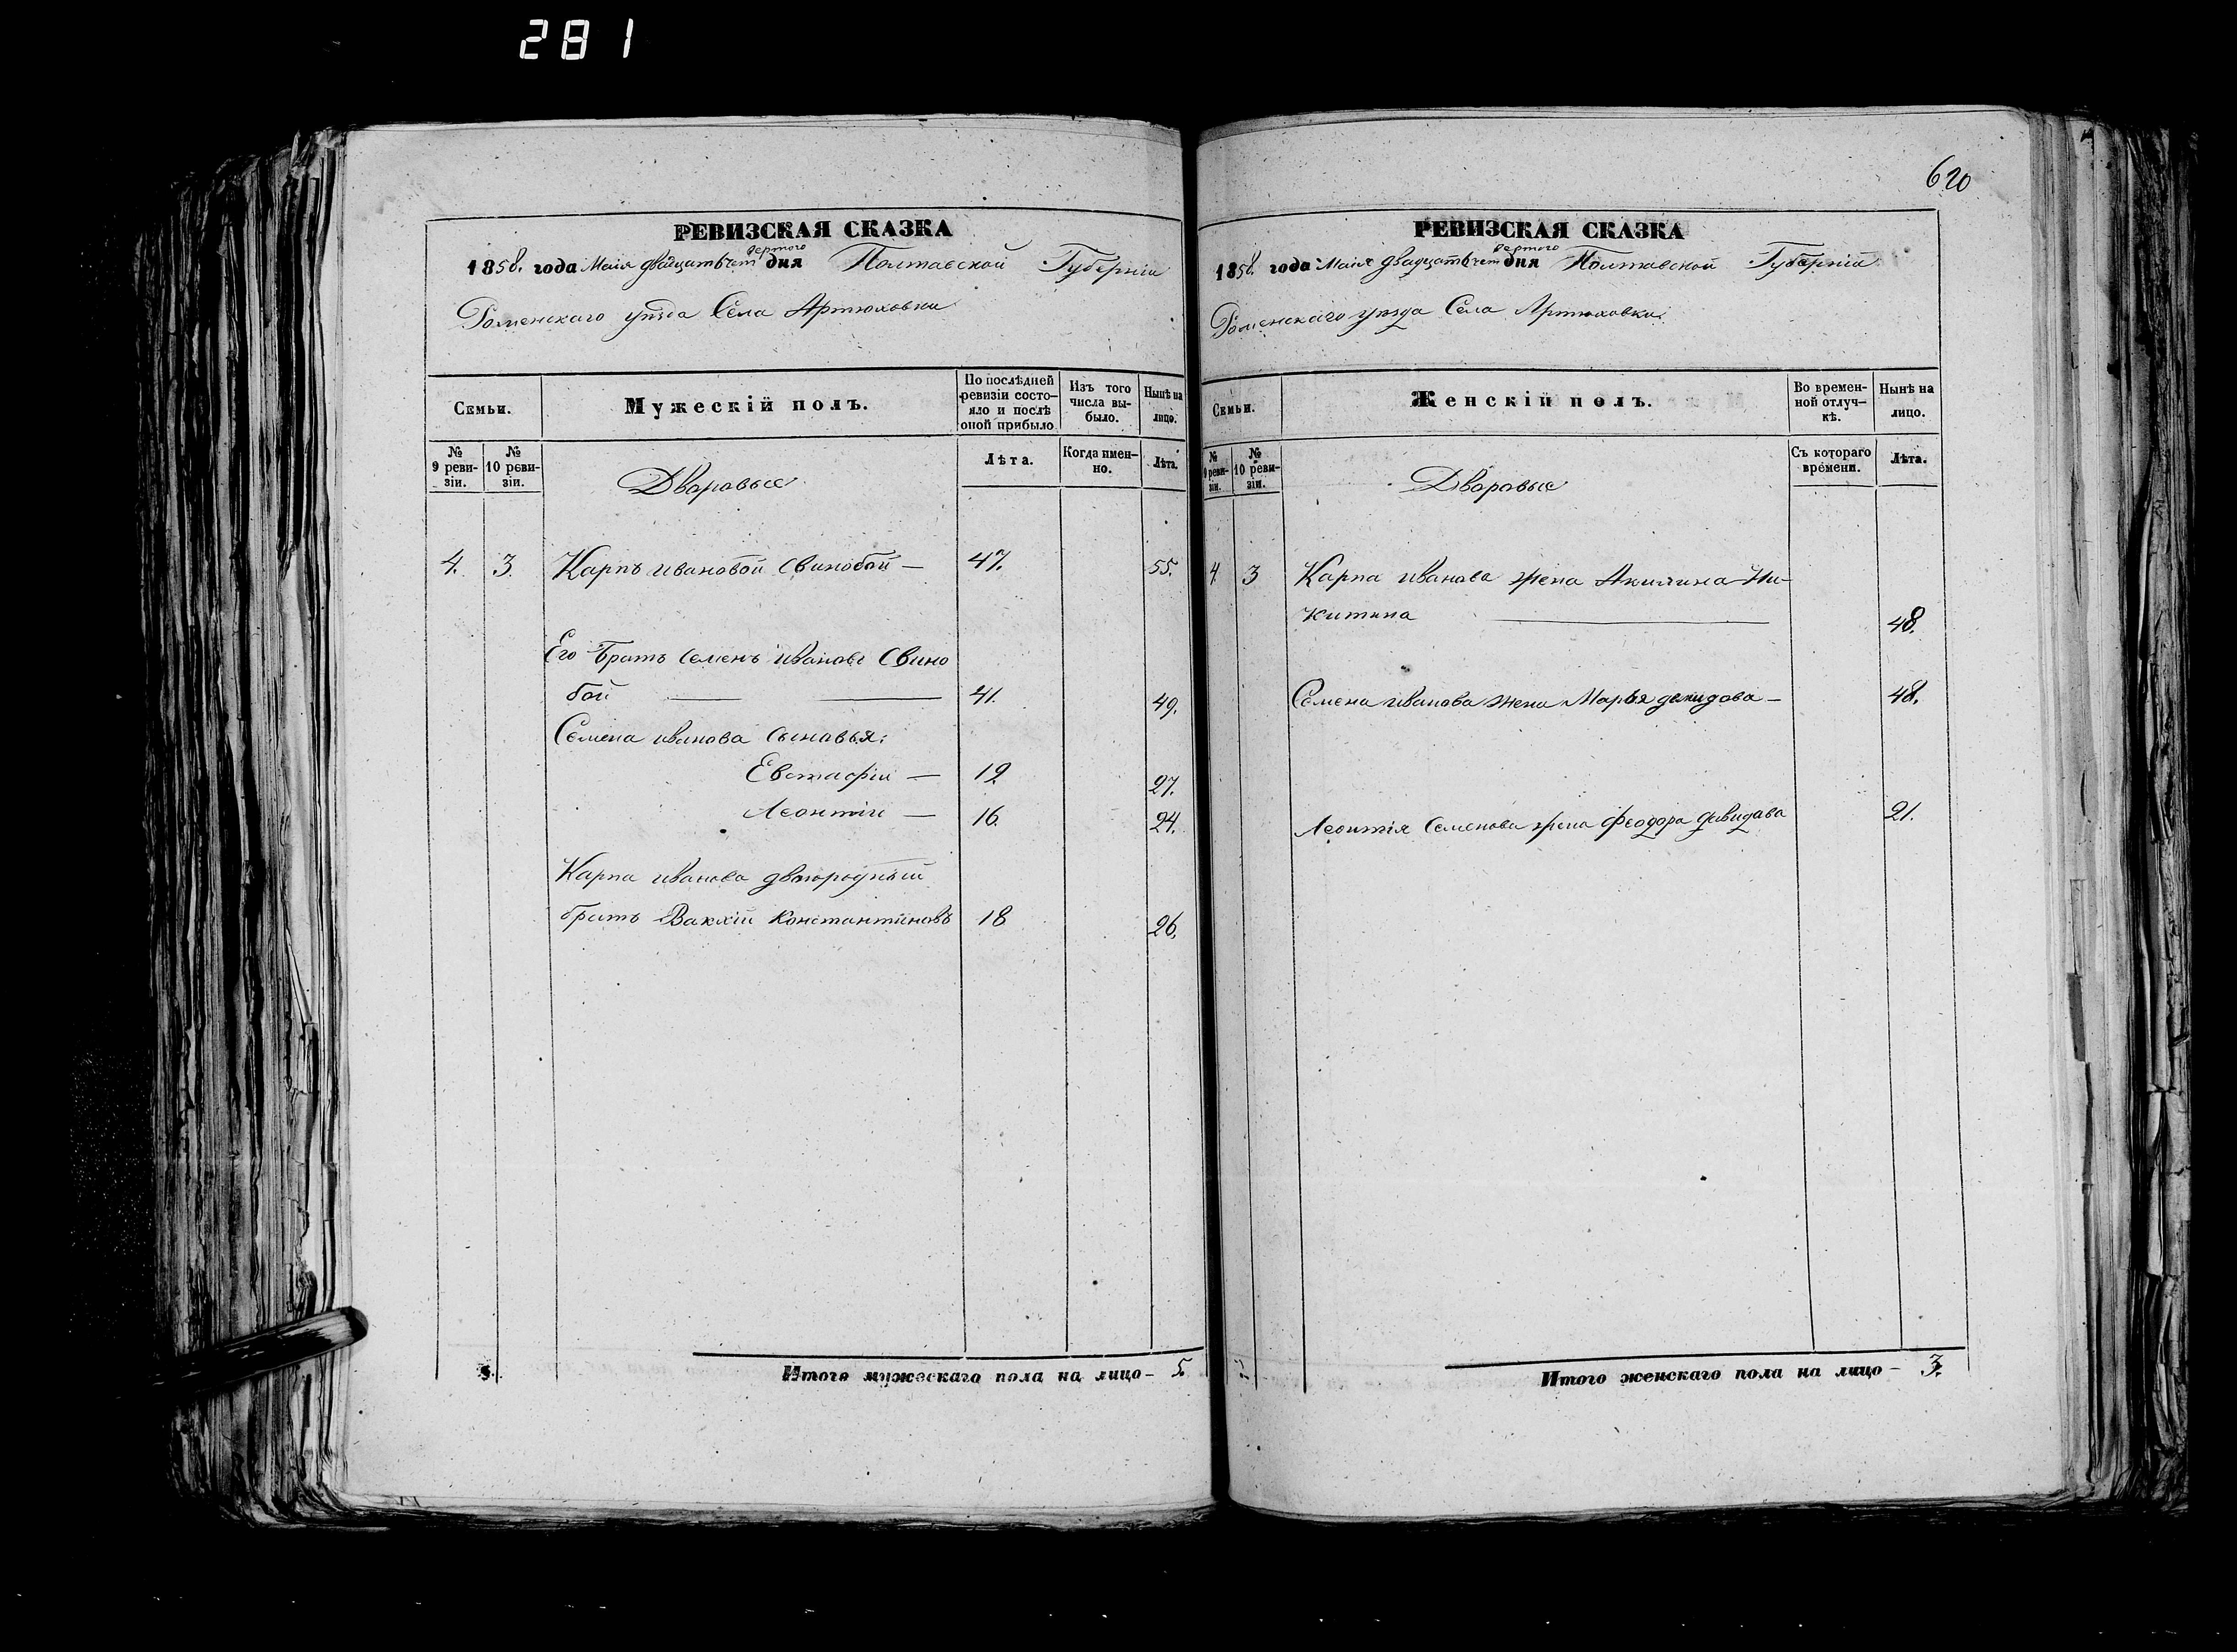 281
620
РЕВИЗСКАЯ СКАЗКА
1858. года Маія двадцать четвертого дня Полтавской Губерніи
Роменскаго уѣзда Села Артюховки
Семьи.
Мужескій полъ.
По послѣдней ревизіи состояло и послѣ оной прибыло
Изъ того числа выбыло.
Нынѣ на лицо.
№ 9 ревизіи.
№ 10 ревизіи.
Дворовые
Лѣта.
Когда именно.
Лѣта.
4. 3. Карпъ Ивановой Свинобой — 47. 55.
Его Братъ Семенъ Ивановъ Свино
бой 41. 49.
Семена Иванова Сыновья:
Евстафіи — 19. 27.
Леонтіи — 16. 24.
Карпа Иванова двоюродный
братъ Вакхіи Константиновъ 18 26.
Итого мужескаго пола на лицо — 5.
РЕВИЗСКАЯ СКАЗКА
1858. года Маія двадцать четвертого дня Полтавской Губерніи
Роменскаго уѣзда Села Артюховки
Семьи.
Женскій полъ.
Во временной отлучкѣ.
Нынѣ на лицо.
№ 9 ревизіи.
№ 10 ревизіи.
Дворовые
Съ котораго времени.
Лѣта.
4. 3 Карпа Иванова жена Акилина Ни-
китина 48.
Семена Иванова жена Марья демидова — 48.
Леонтія Семенова жена Феодора давидова 21.
Итого женскаго пола на лицо — 3.